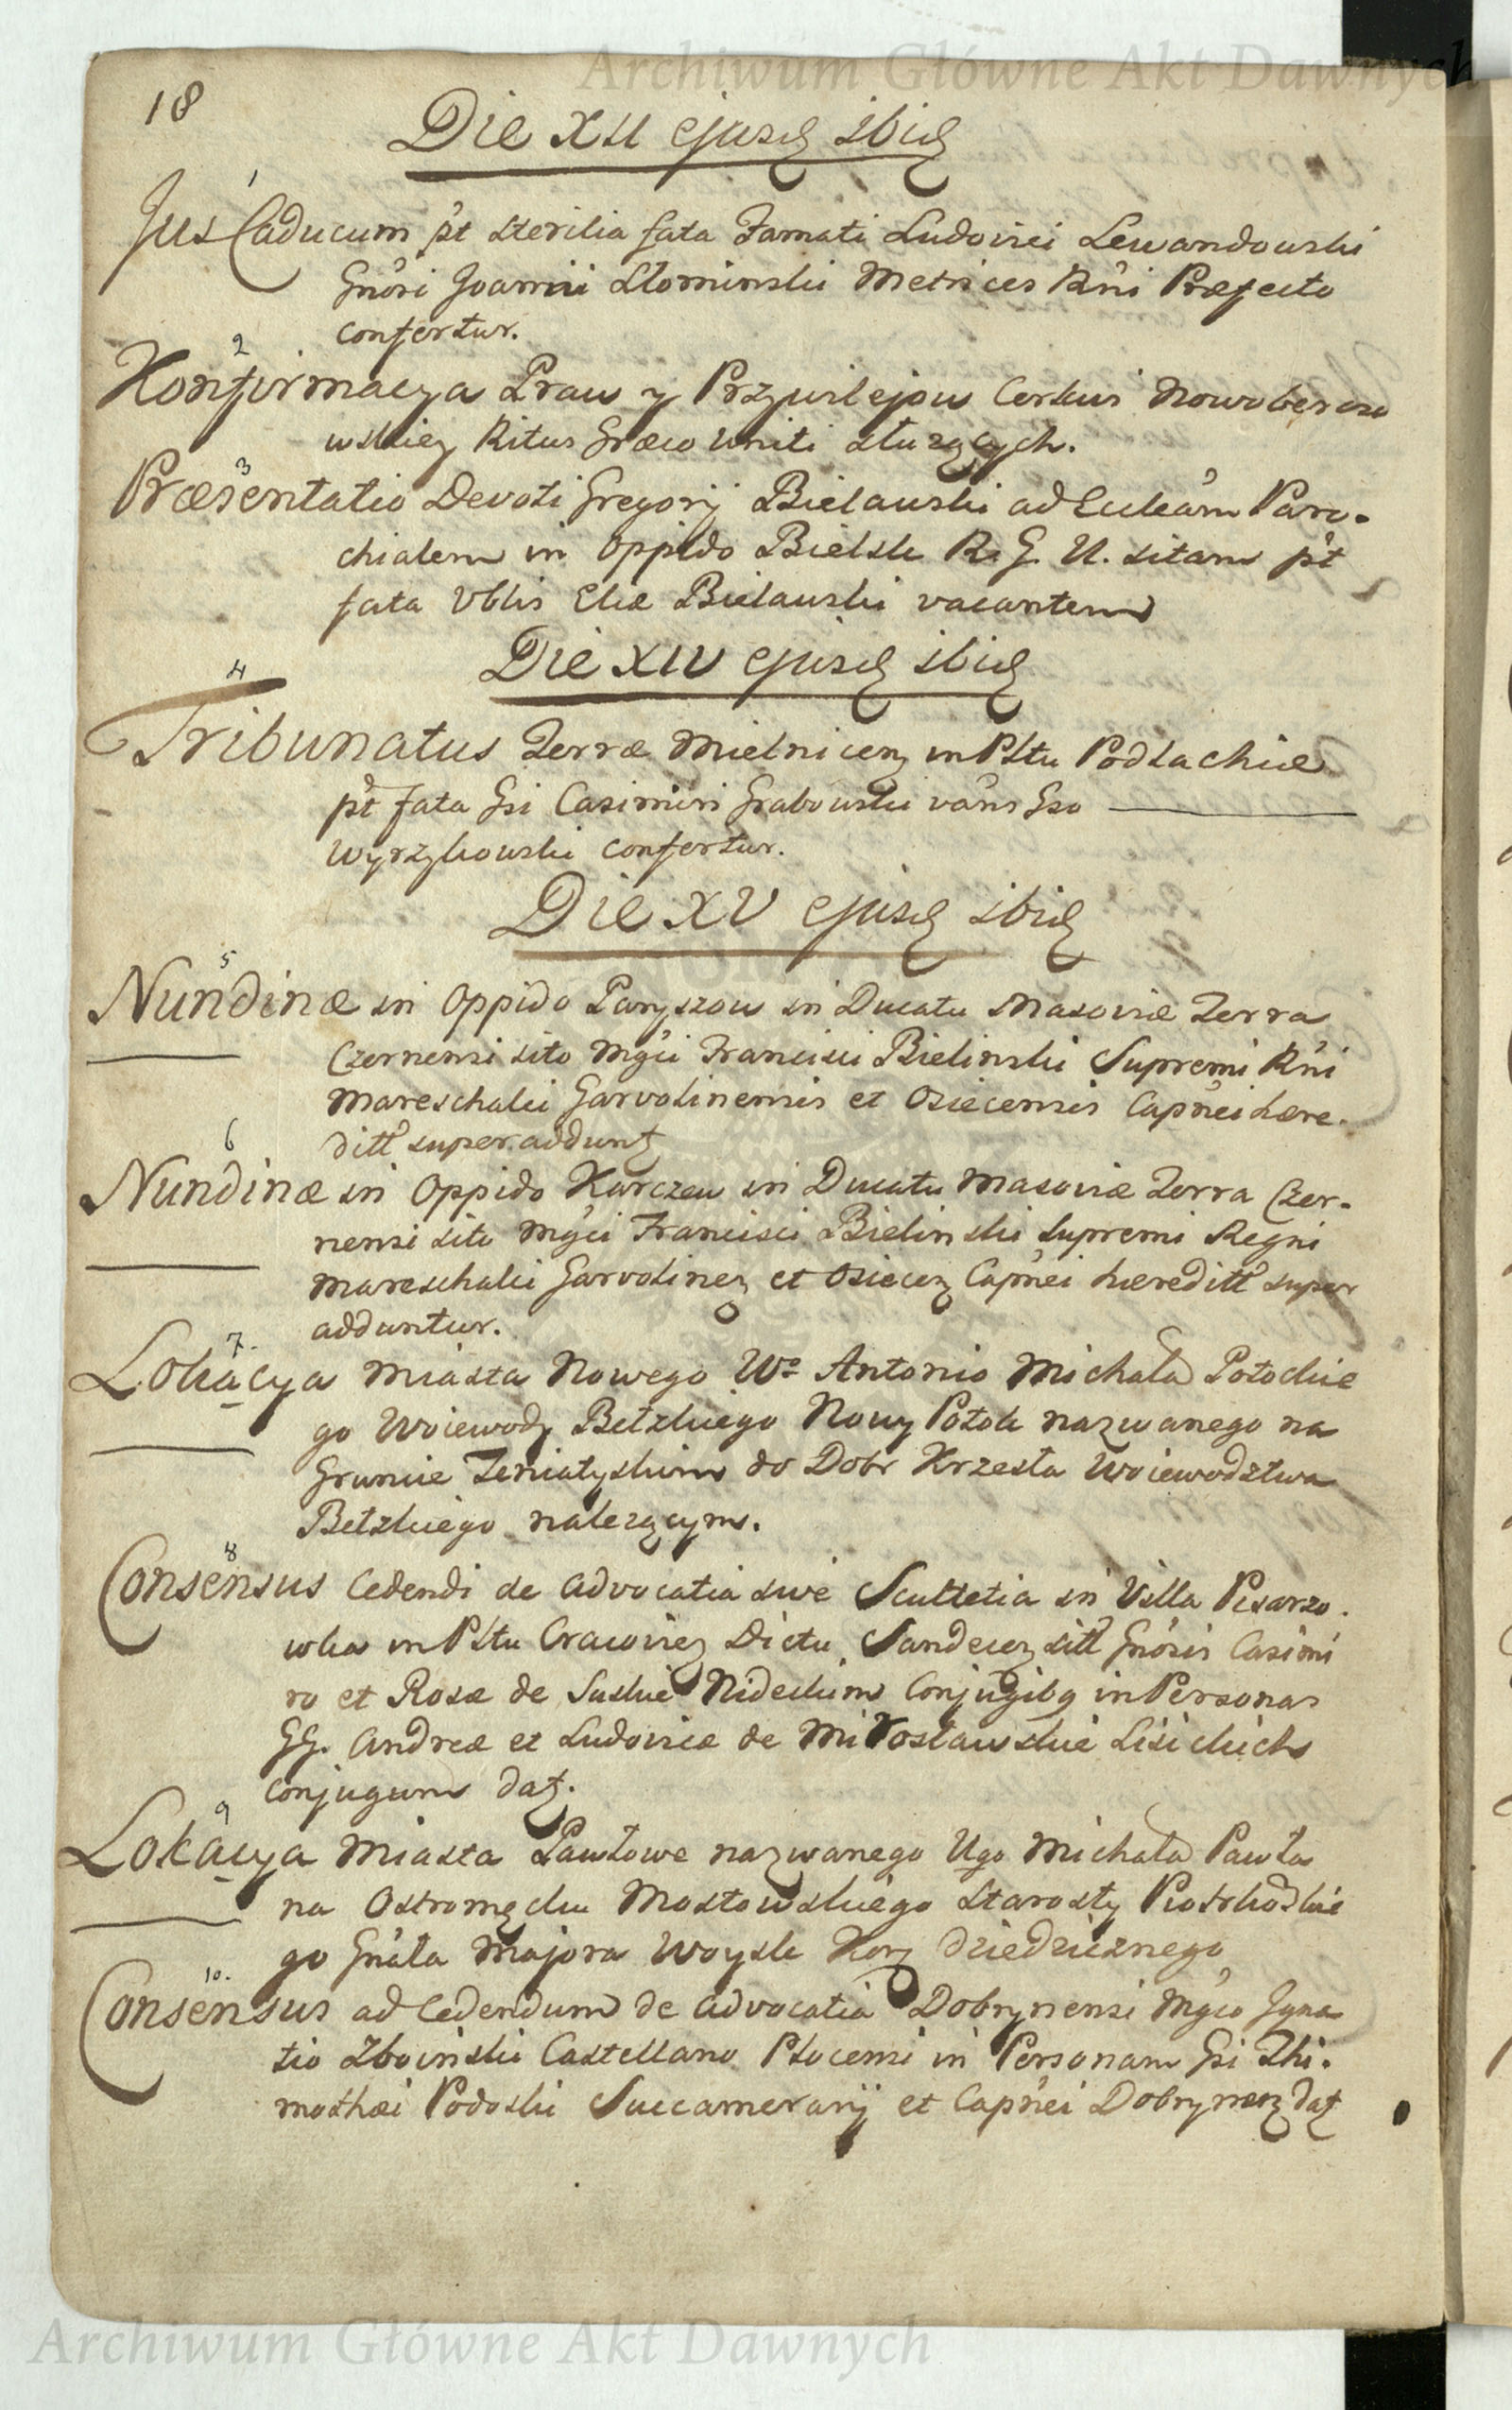 Archiwum Główne Akt Dawnych
18
Die XII ejusd ibid
1
Jus Caducum pt sterilia fata Famati Ludovici Lewandowski
Gnosi Joanni Słominski Metrices Rni Præfecto
confertur.
2
Konfirmacya Praw y Przywilejow Cerkwi Nowoberezo
wskiey Ritus Græco Uniti służących.
3
Præsentatio Devoti Gregorij Bielawski ad Eccleam Paro-
chialem in oppido Bielsk R. G. U. sitam pt
fata Vblis Eliæ Bielawski vacantem
Die XIV ejusd ibid
4
Tribunatus Terræ Mielnicen in Pltu Podlachiæ
pt fata Gsi Casimiri Grabowski vans Gso
Wyrzykowski confertur.
Die XV ejusd ibid
5
Nundinæ in Oppido Paryszow in Ducatu Masoviæ Terra
Czernensi sito Mgci Francisci Bielinski Supremi Rni
Mareschalci Garvolinensis et Osiecensis Capnei hære-
ditt super addunt
6
Nundinæ in Oppido Karczew in Ducatu Masoviæ Terra Czer-
nensi sito Mgci Francisci Bielinski Supremi Regni
Mareschalci Garvolinen et Osiecen Capnei hæreditt super
adduntur.
7.
Lokacya Miasta Nowego Wo Antonio Michała Potockie
go Woiewody Bełzkiego Nowy Potok nazwanego na
Gruncie Teniatyskim do Dobr Krzesła Woiewodztwa
Bełzkiego należącym.
8
Consensus Cedendi de Advocatia sive Scultetia in Villa Pisarzo-
wka in Pltu Cracovien Dictu Sandecen sitt Gnosis Casimi
ro et Rosæ de Suskie Nideckim Conjugibq in Personas
GG. Andreæ et Ludovicæ de Mirosławskie Lisickich
Conjugum dat.
9
Lokacya Miasta Pawłowe nazwanego Ugo Michała Pawła
na Ostromęcku Mostowskiego Starosty Piotrkowskie
go Gnała Majora Woysk Kor dziedzicznego
10.
Consensus ad Cedendum de Advocatia Dobrynensi Mgco Igna
tio Zboinski Castellano Plocensi in Personam Gsi Thi-
mothei Podoski Succamerarij et Capnei Dobrynen dat
Archiwum Główne Akt Dawnych